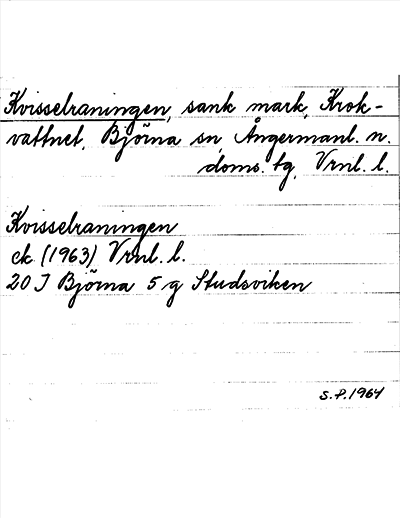 Kvisselraningen, sank mark, Krok-
vattnet, Björna sn, Ångermanl. n.
doms. tg, Vrnl. l.
Kvisselraningen
ek (1963) Vrnl. l.
20 I Björna 5 g Studsviken
S.P. 1964